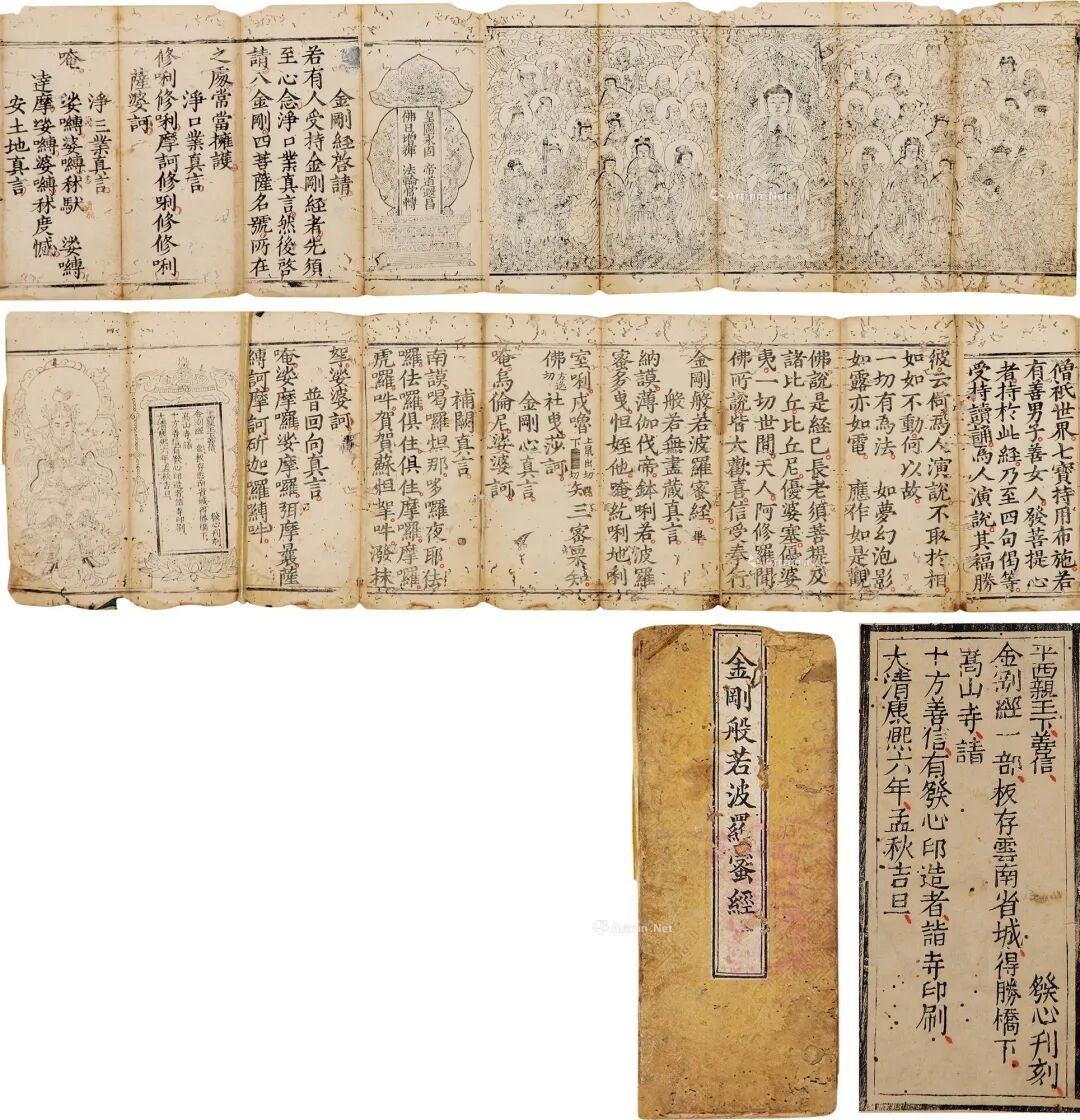 皇圖永固　帝道遐昌
佛日增輝　法輪常轉
金剛經啓請
若有人受持金剛經者先須
至心念淨口業真言然後啓
請八金剛四菩薩名號所在
之處當當擁護
淨口業真言
修唎修唎摩訶修唎修修唎
薩婆訶
淨三業真言
唵　娑嚩婆嚩秫馱　娑嚩
達摩娑嚩婆嚩秫度憾
安土地真言
僧祇世界七寶持用布施若
有善男子善女人發菩提心
者持於此經乃至四句偈等
受持讀誦爲人演說其福勝
彼云何爲人演說不取於相
如如不動何以故
一切有爲法　如夢幻泡影
如露亦如電　應作如是觀
佛說是經已長老須菩提及
諸比丘比丘尼優婆塞優婆
夷一切世間天人阿修羅聞
佛所說皆大歡喜信受奉行
金剛般若波羅蜜經 畢
般若無盡藏真言
納謨薄伽伐帝鉢唎若波羅
蜜多曳怛姪他唵紇唎地唎
室唎戍嚕 知三蜜栗知
佛 社曳莎訶
金剛心真言
唵烏倫尼娑婆訶
補闕真言
南謨喝囉怛那哆囉夜耶佉
囉佉囉俱住俱住摩囉摩囉
虎囉吽賀賀蘇怛拏吽潑抹
拏娑婆訶
普回向真言
唵娑摩囉娑摩囉弭摩曩薩
縛訶摩訶斫迦囉縛吽
平西親王下善信　發心刋刻
金剛經一部板存雲南省城得勝橋下
萬山寺請
十方善信有發心印造者詣寺印刷
大清康熙六年孟秋吉旦
金剛般若波羅蜜經
平西親王下善信　發心刋刻
金剛經一部板存雲南省城得勝橋下
萬山寺請
十方善信有發心印造者詣寺印刷
大清康熙六年孟秋吉旦
Artron.Net